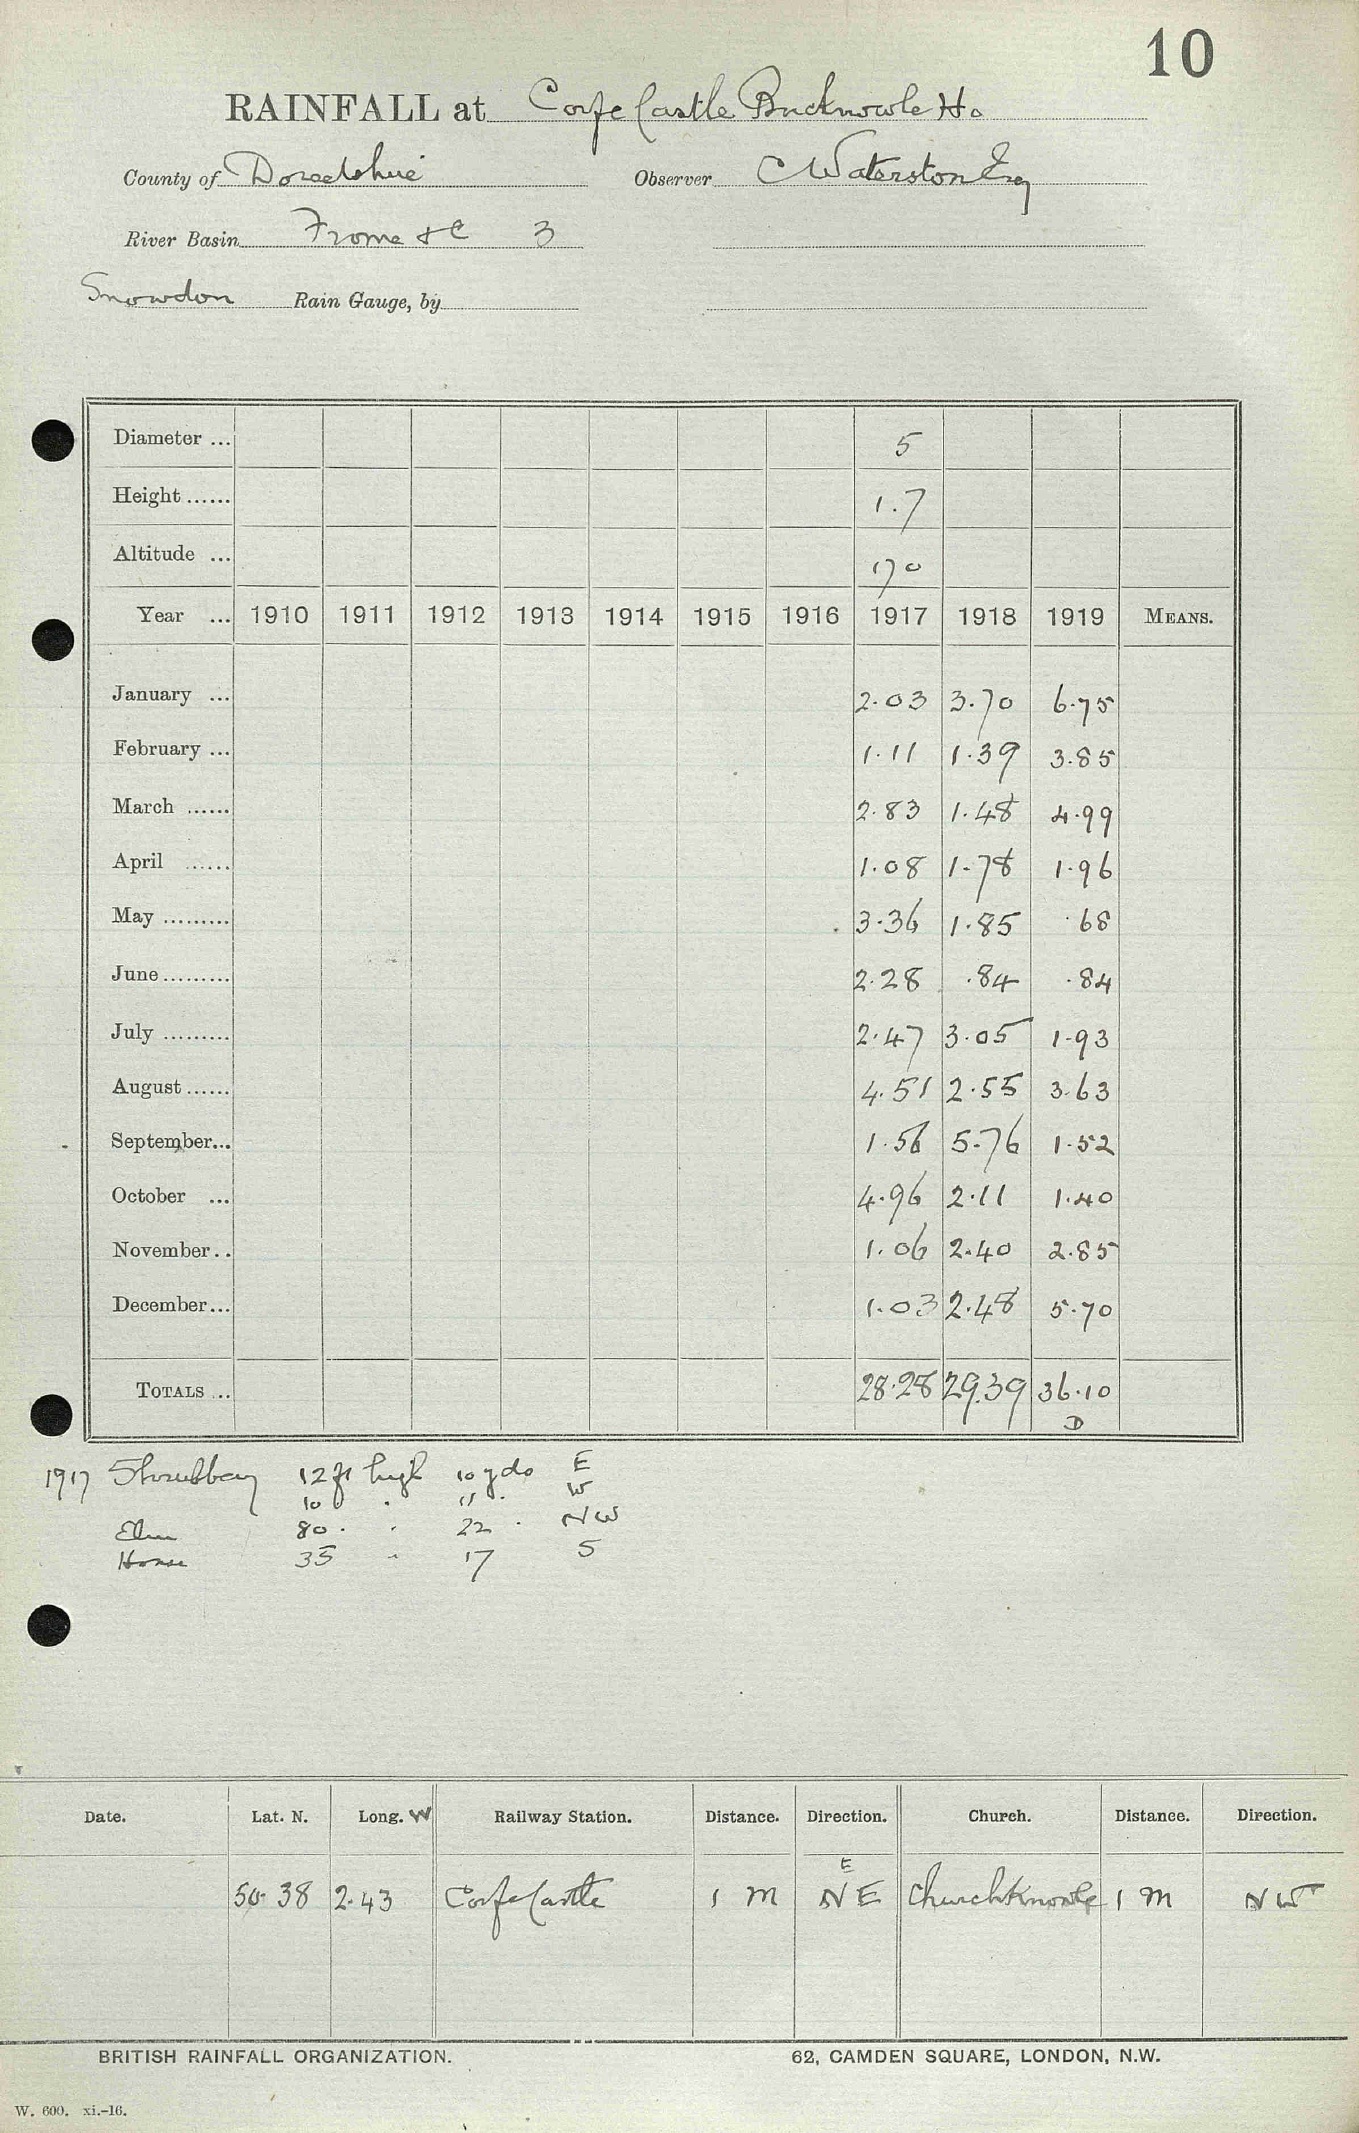 10
RAINFALL at Corfe Castle Bucknowle Ho
County of Dorsetshire Observer C Waterston Esq
River Basin Frome &c 3
Snowdon Rain Gauge, by
Diameter ... 5
Height ...... 1.7
Altitude ... 170
Year ... 1910 1911 1912 1913 1914 1915 1916 1917 1918 1919 MEANS.
January ... 2.03 3.70 6.75
February ... 1.11 1.39 3.85
March ...... 2.83 1.48 4.99
April ...... 1.08 1.78 1.96
May ......... 3.36 1.85 .68
June ......... 2.28 .84 .84
July ......... 2.47 3.05 1.93
August ...... 4.51 2.55 3.63
September... 1.56 5.76 1.52
October ... 4.96 2.11 1.40
November.. 1.06 2.40 2.85
December... 1.03 2.48 5.70
TOTALS ... 28.28 29.39 36.10
D
1917 Shrubbery 12 ft high 10 yds E
10 " 11 " W
Elm 80 " " 22 " NW
House 35 " 17 S
Date. Lat. N. Long. W Railway Station. Distance. Direction. Church. Distance. Direction.
E
50.38 2.43 Corfe Castle 1 m NE Church Knowle 1 m NW
BRITISH RAINFALL ORGANIZATION. 62, CAMDEN SQUARE, LONDON, N.W.
W. 600. xi.-16.